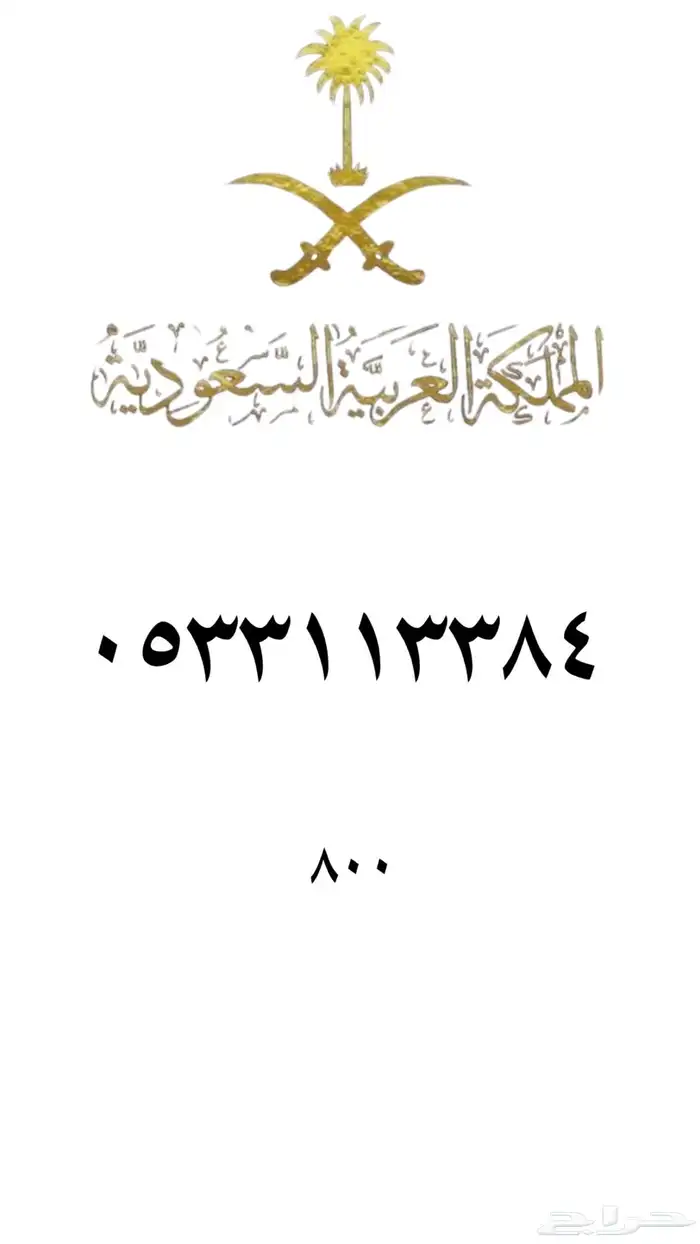 المملكة العربية السعودية
٠٥٣٣١١٣٣٨٤
٨٠٠
حراج